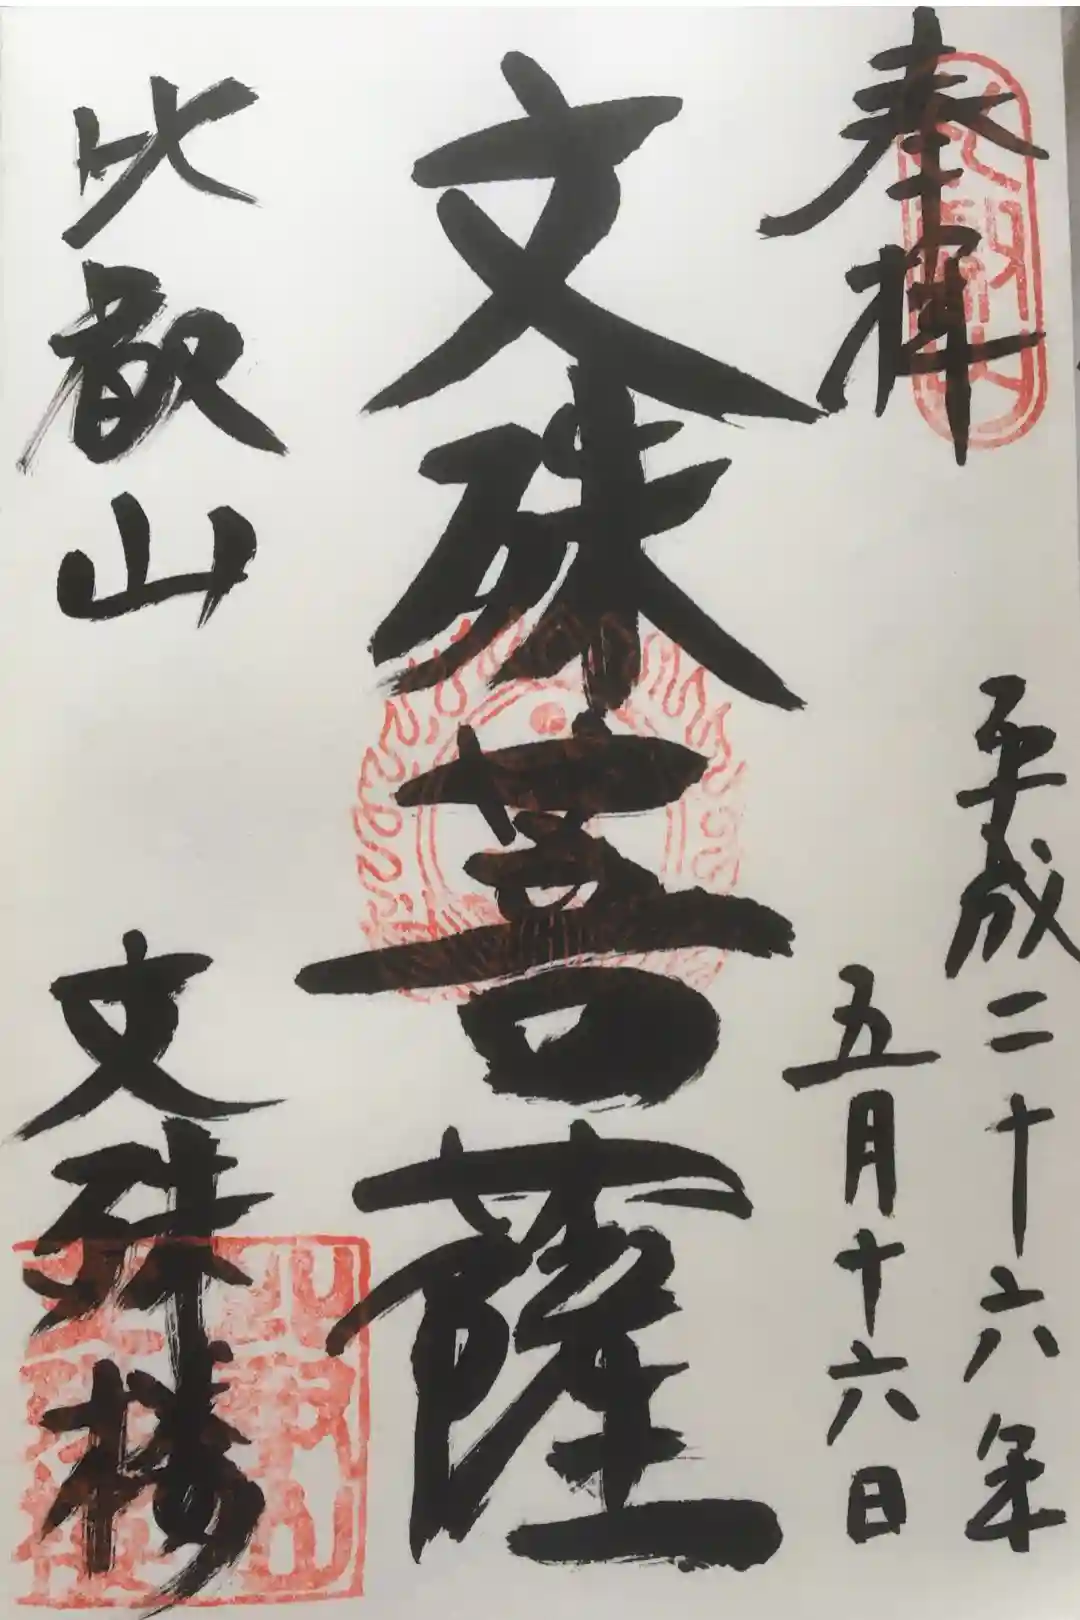 奉拝
平成二十六年
五月十六日
文殊菩薩
比叡山
文殊楼